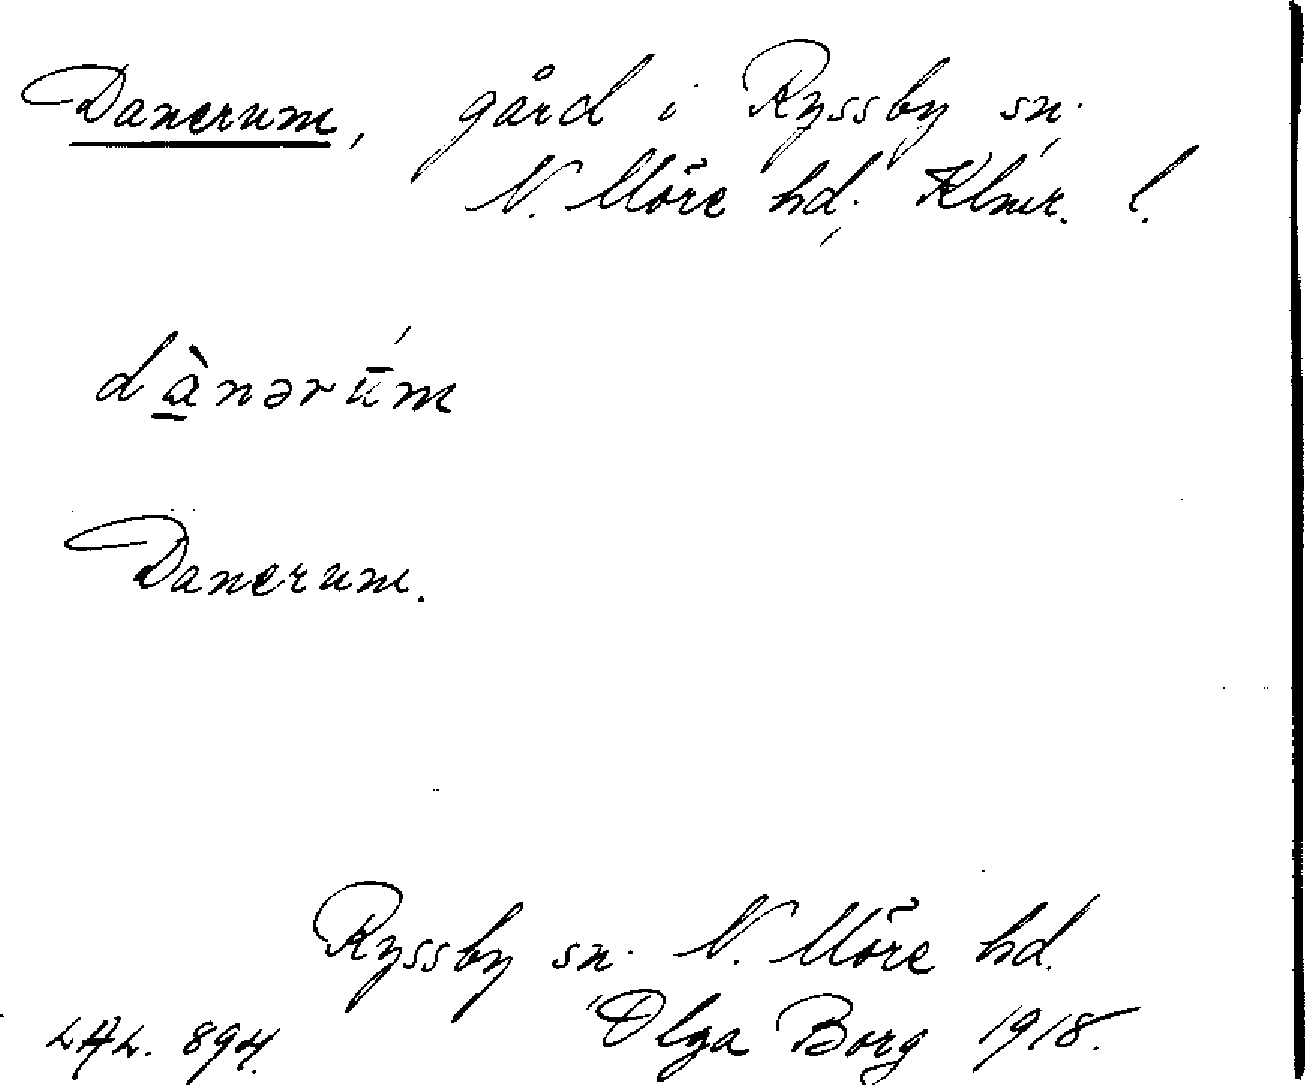 Danerum, gård i Ryssby sn.
N. Möre hd. Klmr. l.
dà̠nərū́m
Danerum.
Ryssby sn. N. Möre hd.
LAL. 894. Olga Borg 1918.